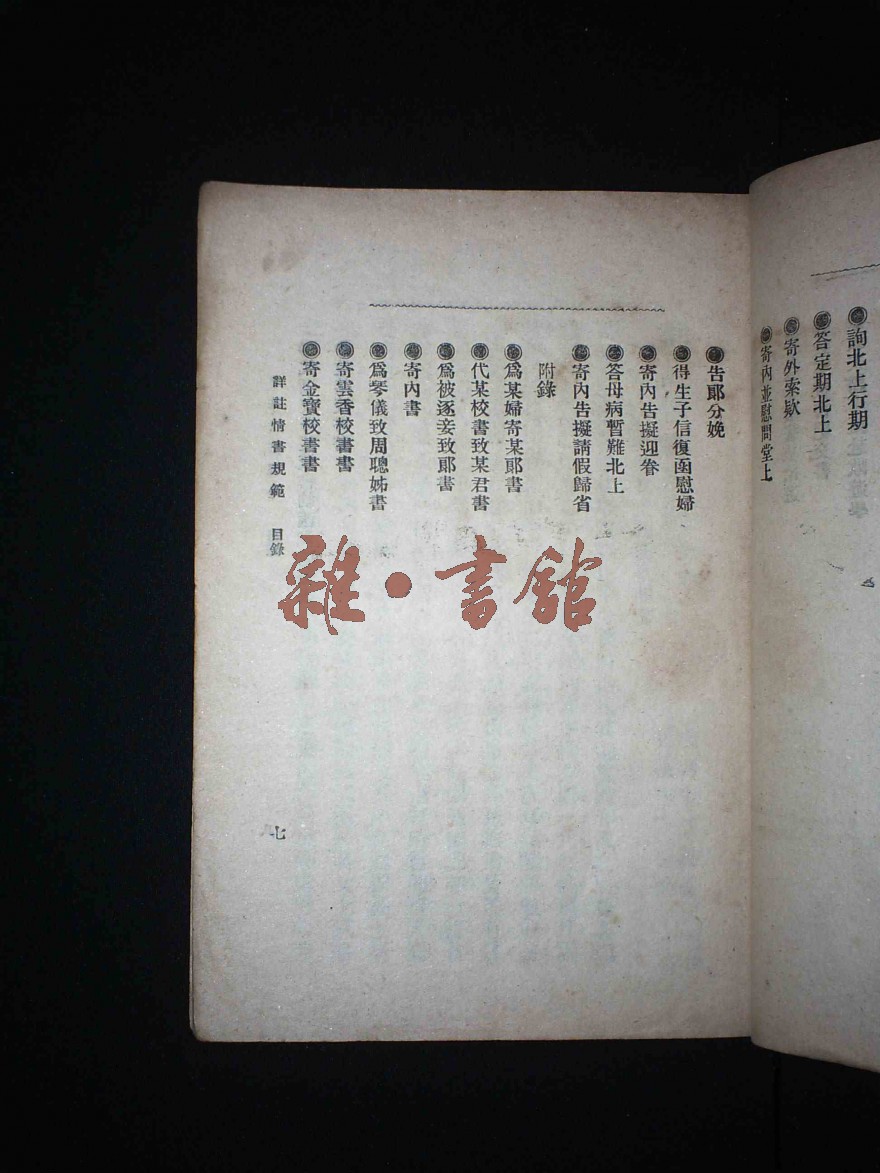 詢北上行期
答定期北上
寄外索欵
寄內並慰問堂上
告郎分娩
得生子信復函慰婦
寄內告擬迎眷
答母病暫難北上
寄內告擬請假歸省
附錄
爲某婦寄某郎書
代某校書致某君書
爲被逐妾致郎書
寄內書
爲琴儀致周聰姊書
寄雲香校書書
寄金寶校書書
詳註情書規範 目錄
七
雜·書館